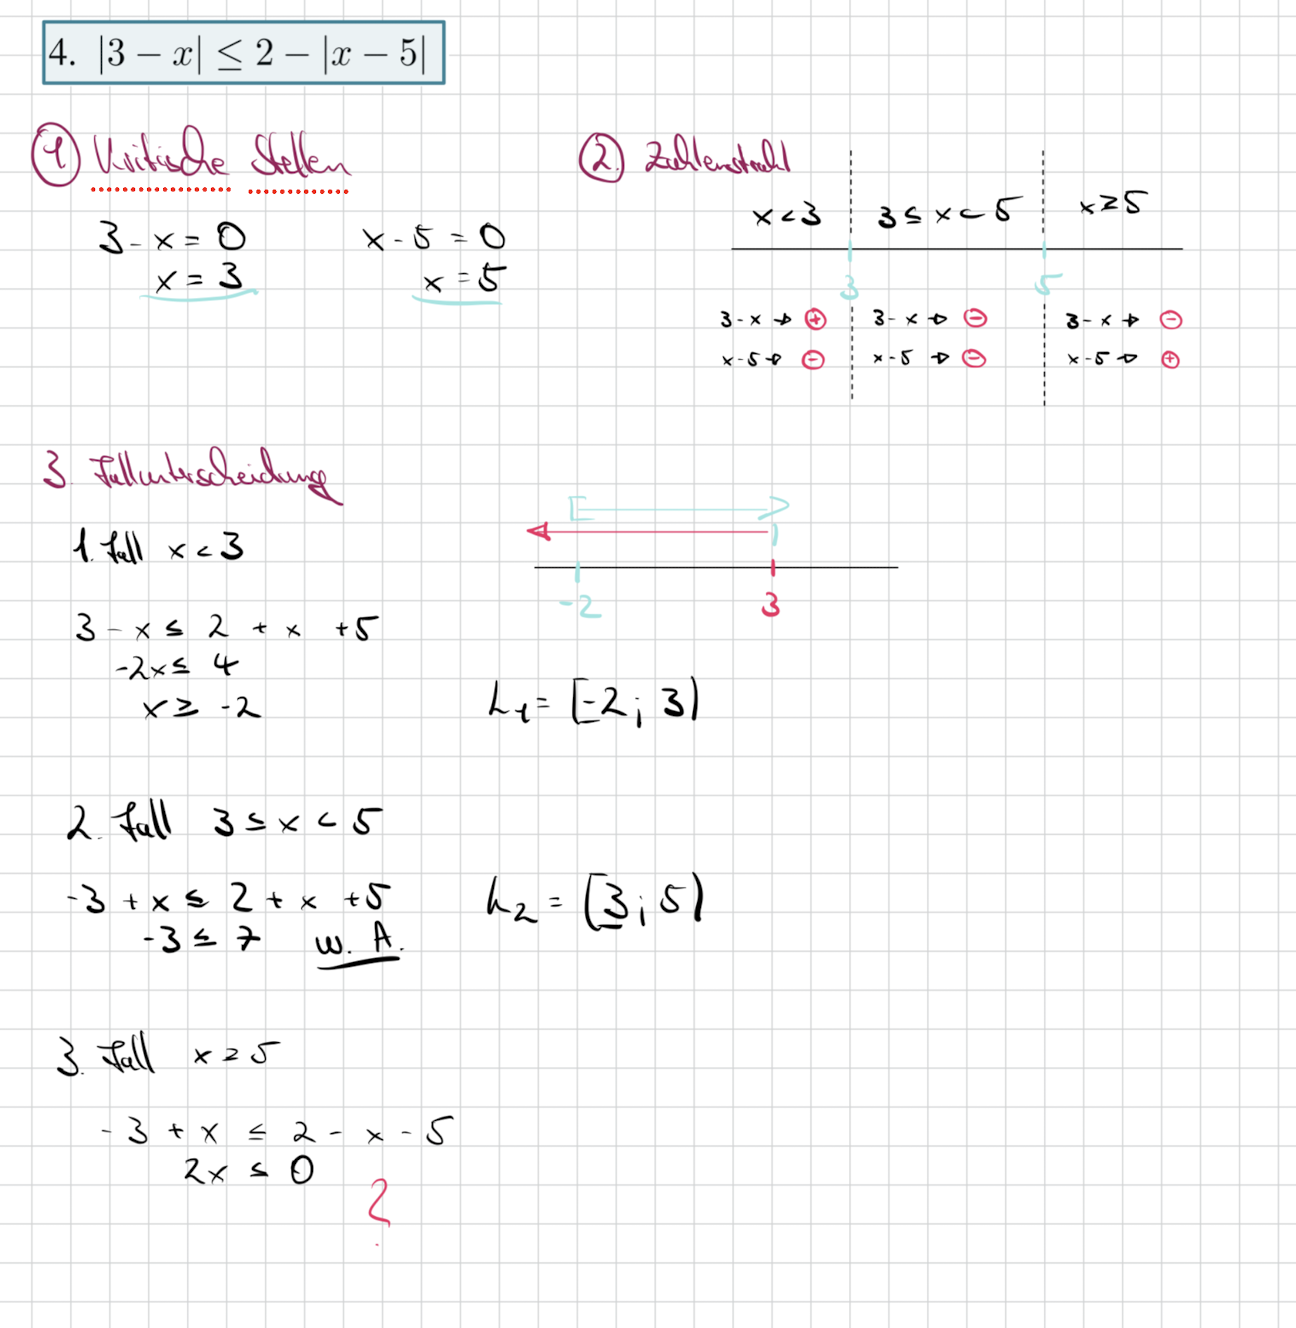 4. |3 − x| ≤ 2 − |x − 5|
① Kritische Stellen
3 - x = 0
x = 3
x - 5 = 0
x = 5
② Zahlenstrahl
x < 3
3 ≤ x < 5
x ≥ 5
3
5
3 - x → ⊕
x - 5 → ⊖
3 - x → ⊖
x - 5 → ⊖
3 - x → ⊖
x - 5 → ⊕
3. Fallunterscheidung
1. Fall x < 3
3 - x ≤ 2 + x + 5
-2x ≤ 4
x ≥ -2
-2
3
L₁ = [-2; 3)
2. Fall 3 ≤ x < 5
-3 + x ≤ 2 + x + 5
-3 ≤ 7 w. A.
L₂ = [3; 5)
3. Fall x ≥ 5
-3 + x ≤ 2 - x - 5
2x ≤ 0
?